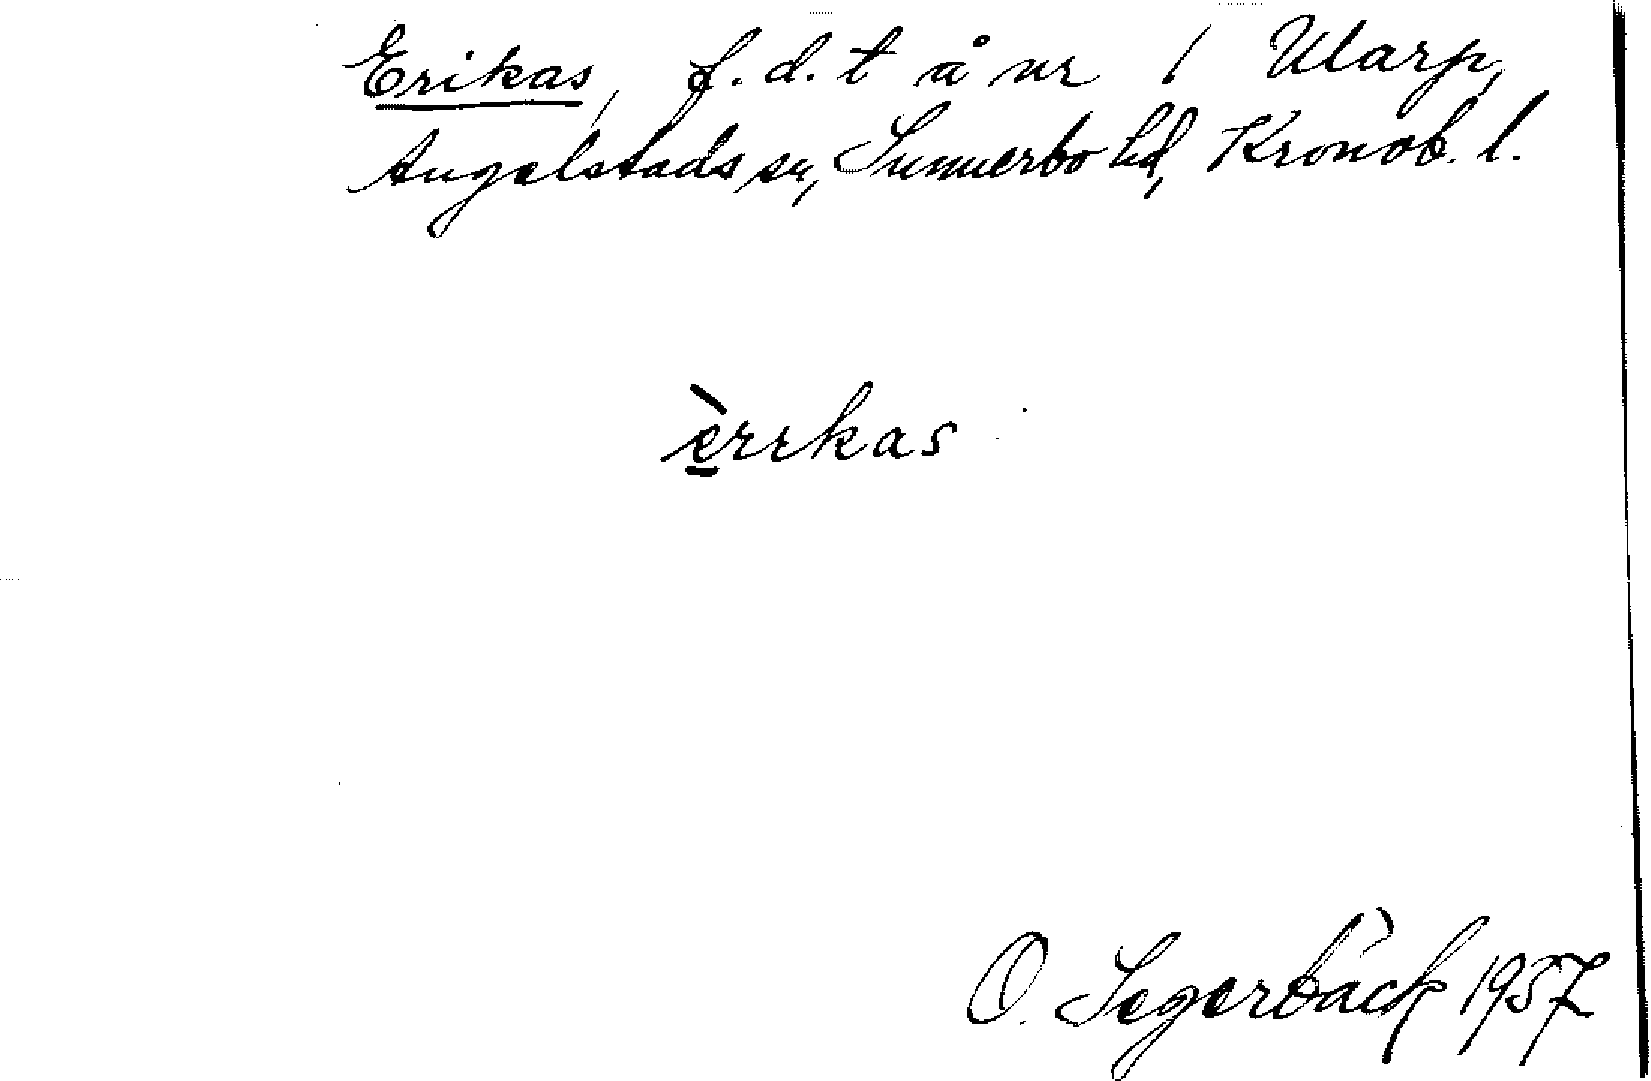 Erikas, f.d. t å nr 1 Ularp,
Angelstads sn, Sunnerbo hd, Kronob. l.
èrrkas
O. Segerbäck 1957